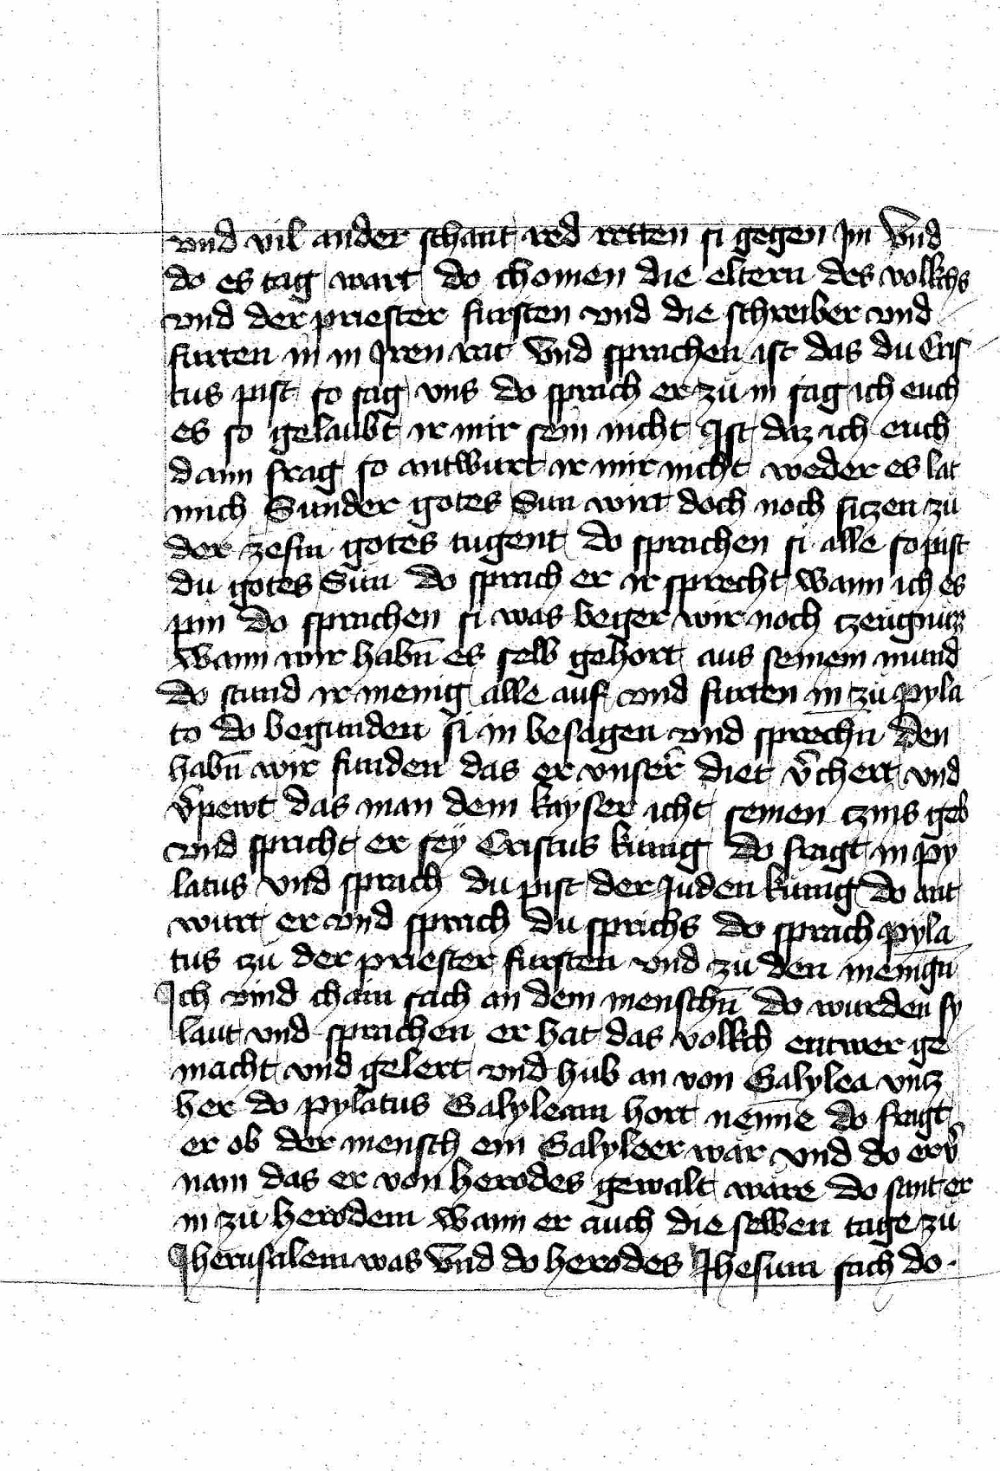 vnd vil ander schant red retten si gegen Im Vnd
do es tag wart do chomen die eltern des vollkchs
vnd der priester fursten vnd die schreiber vnd
furten in in Iren rat Vnd sprachen ist das du Cris
tus pist so sag vns do sprach er zů in sag ich euch
es so gelaubt ir mir sein nicht Ist daz ich euch
dann frag so antwurt ir mir nicht weder es lat
mich Sunder gotes Sun wirt doch noch siczen zů
der zesm gotes tugent do sprachen si alle so pist
du gotes Sun do sprach er ir sprecht wann ich es
pin do sprachen si was beger wir noch czeugnuzz
Wann wir habn̄ es selb gehort aus seinem mund
do stund ir menig alle auf vnd furten in zů Pyla
to do begunden si in besagen vnd sprechn̄ den
habn̄ wir funden das er vnser̄ diet v̄chert vnd
v̄pewt das man dem kayser icht seinen czins geb
vnd spricht er sey Cristus kunig do fragt in py
latus vnd sprach du pist der Juden kunig do ant
wurt er vnd sprach du sprichs do sprach pyla
tus zů der priester fursten vnd zů den menign̄
Ich vind chain sach an dem menschn̄ do wurden sy
laut vnd sprachen er hat das vollkch entwer ge
macht vnd gelert vnd hub an von Galylea vncz
her do pylatus Galyleam hort nenn̄e do fragt
er ob der mensch ein Galyleer war vnd do er v̄
nam das er von herodes gewalt wäre do sant er
in zů herodem Wann er auch die selben tage zů
Jherusalem was Vnd do herodes Jhesum sach do